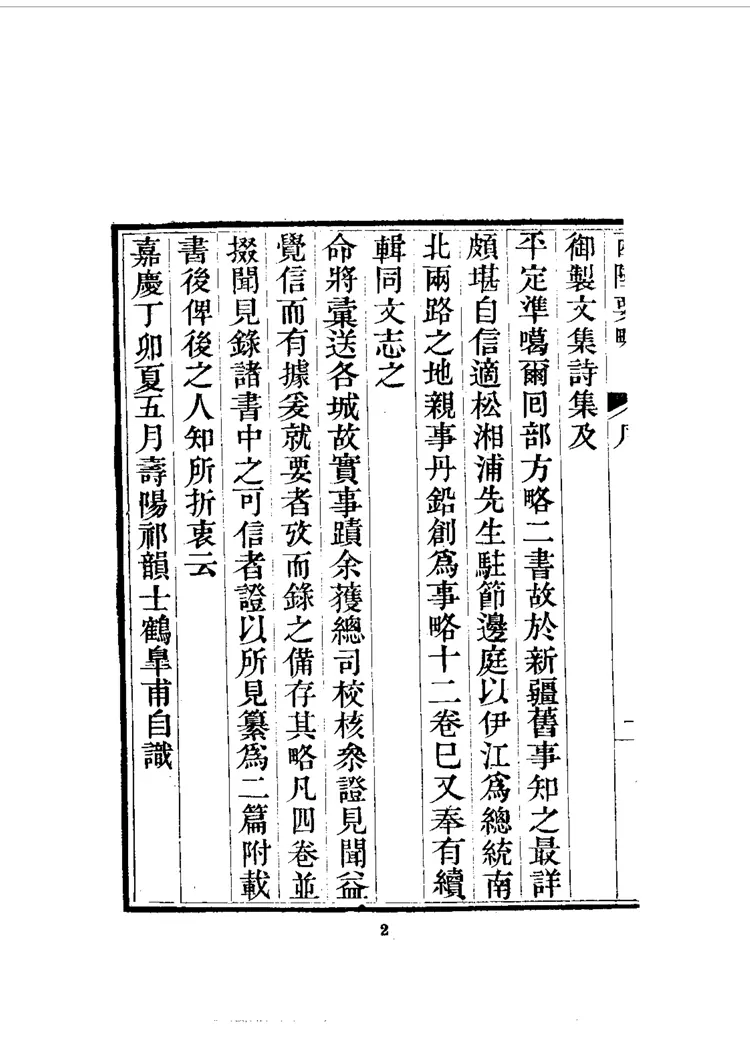 御製文集詩集及
平定準噶爾囘部方略二書故於新疆舊事知之最詳
頗堪自信適松湘浦先生駐節邊庭以伊江爲總統南
北兩路之地親事丹鉛創爲事略十二卷巳又奉有續
輯同文志之
命將彚送各城故實事蹟余獲總司校核衆證見聞益
覺信而有據爰就要者攷而錄之備存其略凡四卷並
掇聞見錄諸書中之可信者證以所見纂爲二篇附載
書後俾後之人知所折衷云
嘉慶丁卯夏五月壽陽祁韻士鶴皐甫自識
2